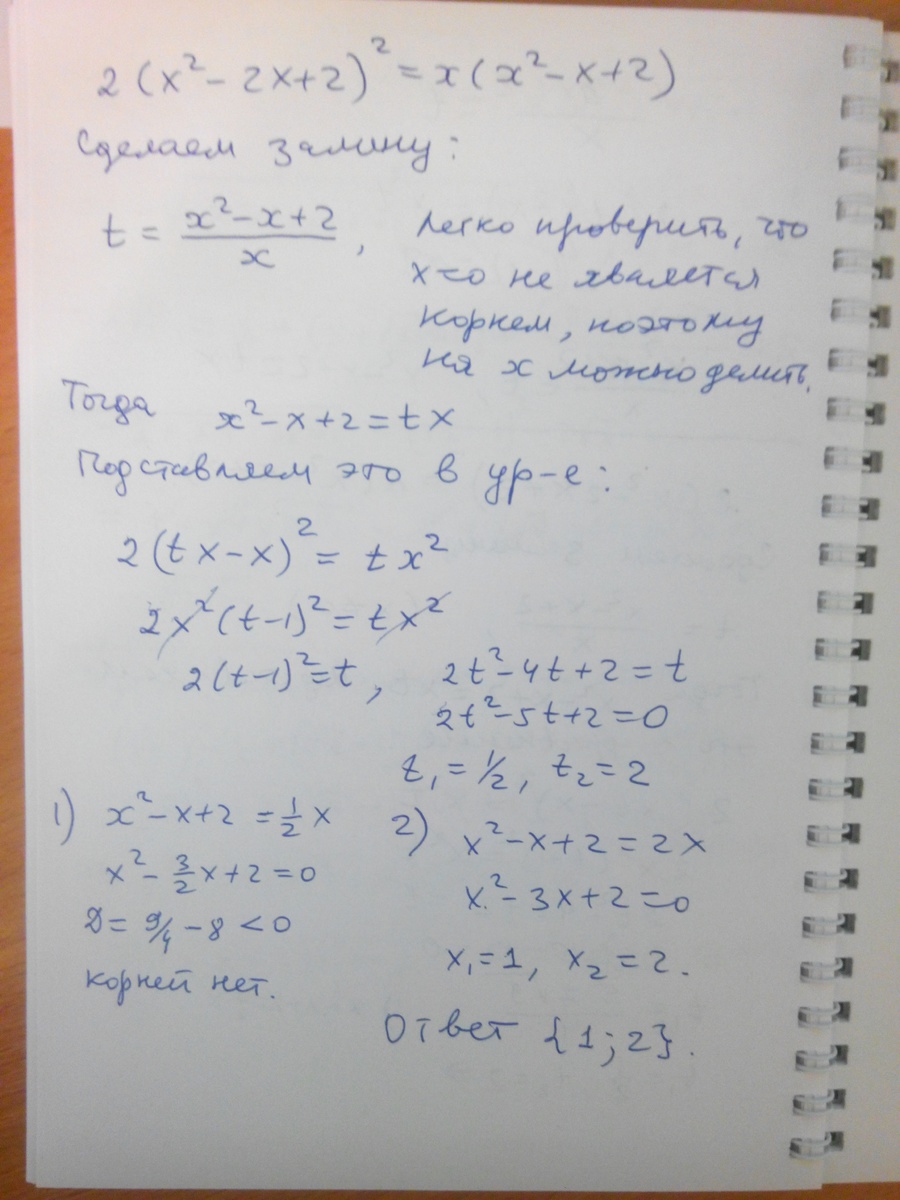 2(x² - 2x + 2)² = x(x² - x + 2)
Сделаем замину:
t = (x² - x + 2)/x , легко проверить, что
x=0 не явялется
корнем, поэтому
на x можно делить.
Тогда x² - x + 2 = tx
Подставляем это в ур-е:
2(tx - x)² = tx²
2x²(t-1)² = tx²
2(t-1)² = t, 2t² - 4t + 2 = t
2t² - 5t + 2 = 0
t₁ = 1/2, t₂ = 2
1) x² - x + 2 = 1/2 x
x² - 3/2 x + 2 = 0
D = 9/4 - 8 < 0
корней нет.
2) x² - x + 2 = 2x
x² - 3x + 2 = 0
x₁ = 1, x₂ = 2.
Ответ {1; 2}.